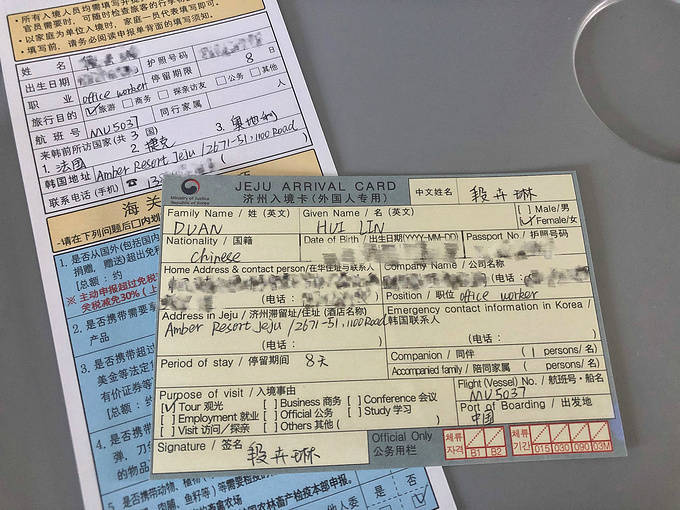 · 所有入境人员均需填写并提
官员需要时，可随时检查旅客的行李物
· 以家庭为单位入境时，家庭一员代表填写即可。
· 填写前，请务必阅读申报单背面的填写须知。
姓 名 护照号码
出生日期 停留期限 8 日
职 业 office worker
旅行目的 ☑旅游 □商务 □探亲访友 □公务 □其他
航 班 号 MU5037 同行家属 人
来韩前所访国家(共 3 国)
1. 法国 2. 捷克 3. 奥地利
韩国地址 Amber Resort Jeju / 2671-51, 1100 Road
联系电话 (手机) ☎ 13 ( )
海 关
-请在下列问题后□内划
1. 是否从国外(包括国内
捐赠，赠送)超出免税
[总额：约
※ 主动申报超过免税
关税减免30% (上
2. 是否携带需要享
产品
3. 是否携带超过
美金等法定
有价证券等
[总额：约
4. 是否携带
弹，刀
的物品
5. 是否携带动物，植物
肉脯、鱼籽等)等需要检
国农林畜产检疫本部申报。
是 否
Ministry of Justice
Republic of Korea
JEJU ARRIVAL CARD
济州入境卡 (外国人专用)
中文姓名 段卉琳
Family Name / 姓 (英文) Given Name / 名 (英文) □ Male/男
DUAN HUI LIN ☑ Female/女
Nationality / 国籍 Date of Birth / 出生日期(YYYY-MM-DD) Passport No. / 护照号码
Chinese
Home Address & contact person/在华住址与联系人 Company Name / 公司名称
(电话 : ) (电话 :
Position / 职位 office worker
Address in Jeju / 济州滞留处/住址 (酒店名称) Emergency contact information in Korea /
Amber Resort Jeju / 2671-51, 1100 Road 韩国联系人
(电话 : ) (电话 : )
Period of stay / 停留期间 8天 Companion / 同伴 ( persons/ 名)
Accompanied family / 陪同家属 ( persons/ 名)
Purpose of visit / 入境事由 Flight (Vessel) No. / 航班号·船名
☑ Tour 观光 □ Business 商务 □ Conference 会议 MU5037
□ Employment 就业 □ Official 公务 □ Study 学习 Port of Boarding / 出发地
□ Visit 访问/探亲 □ Others 其他 ( ) 中国
Signature / 签名 段卉琳
Official Only
公务用栏
체류 체류
자격 B1 B2 기간 015 030 090 03M